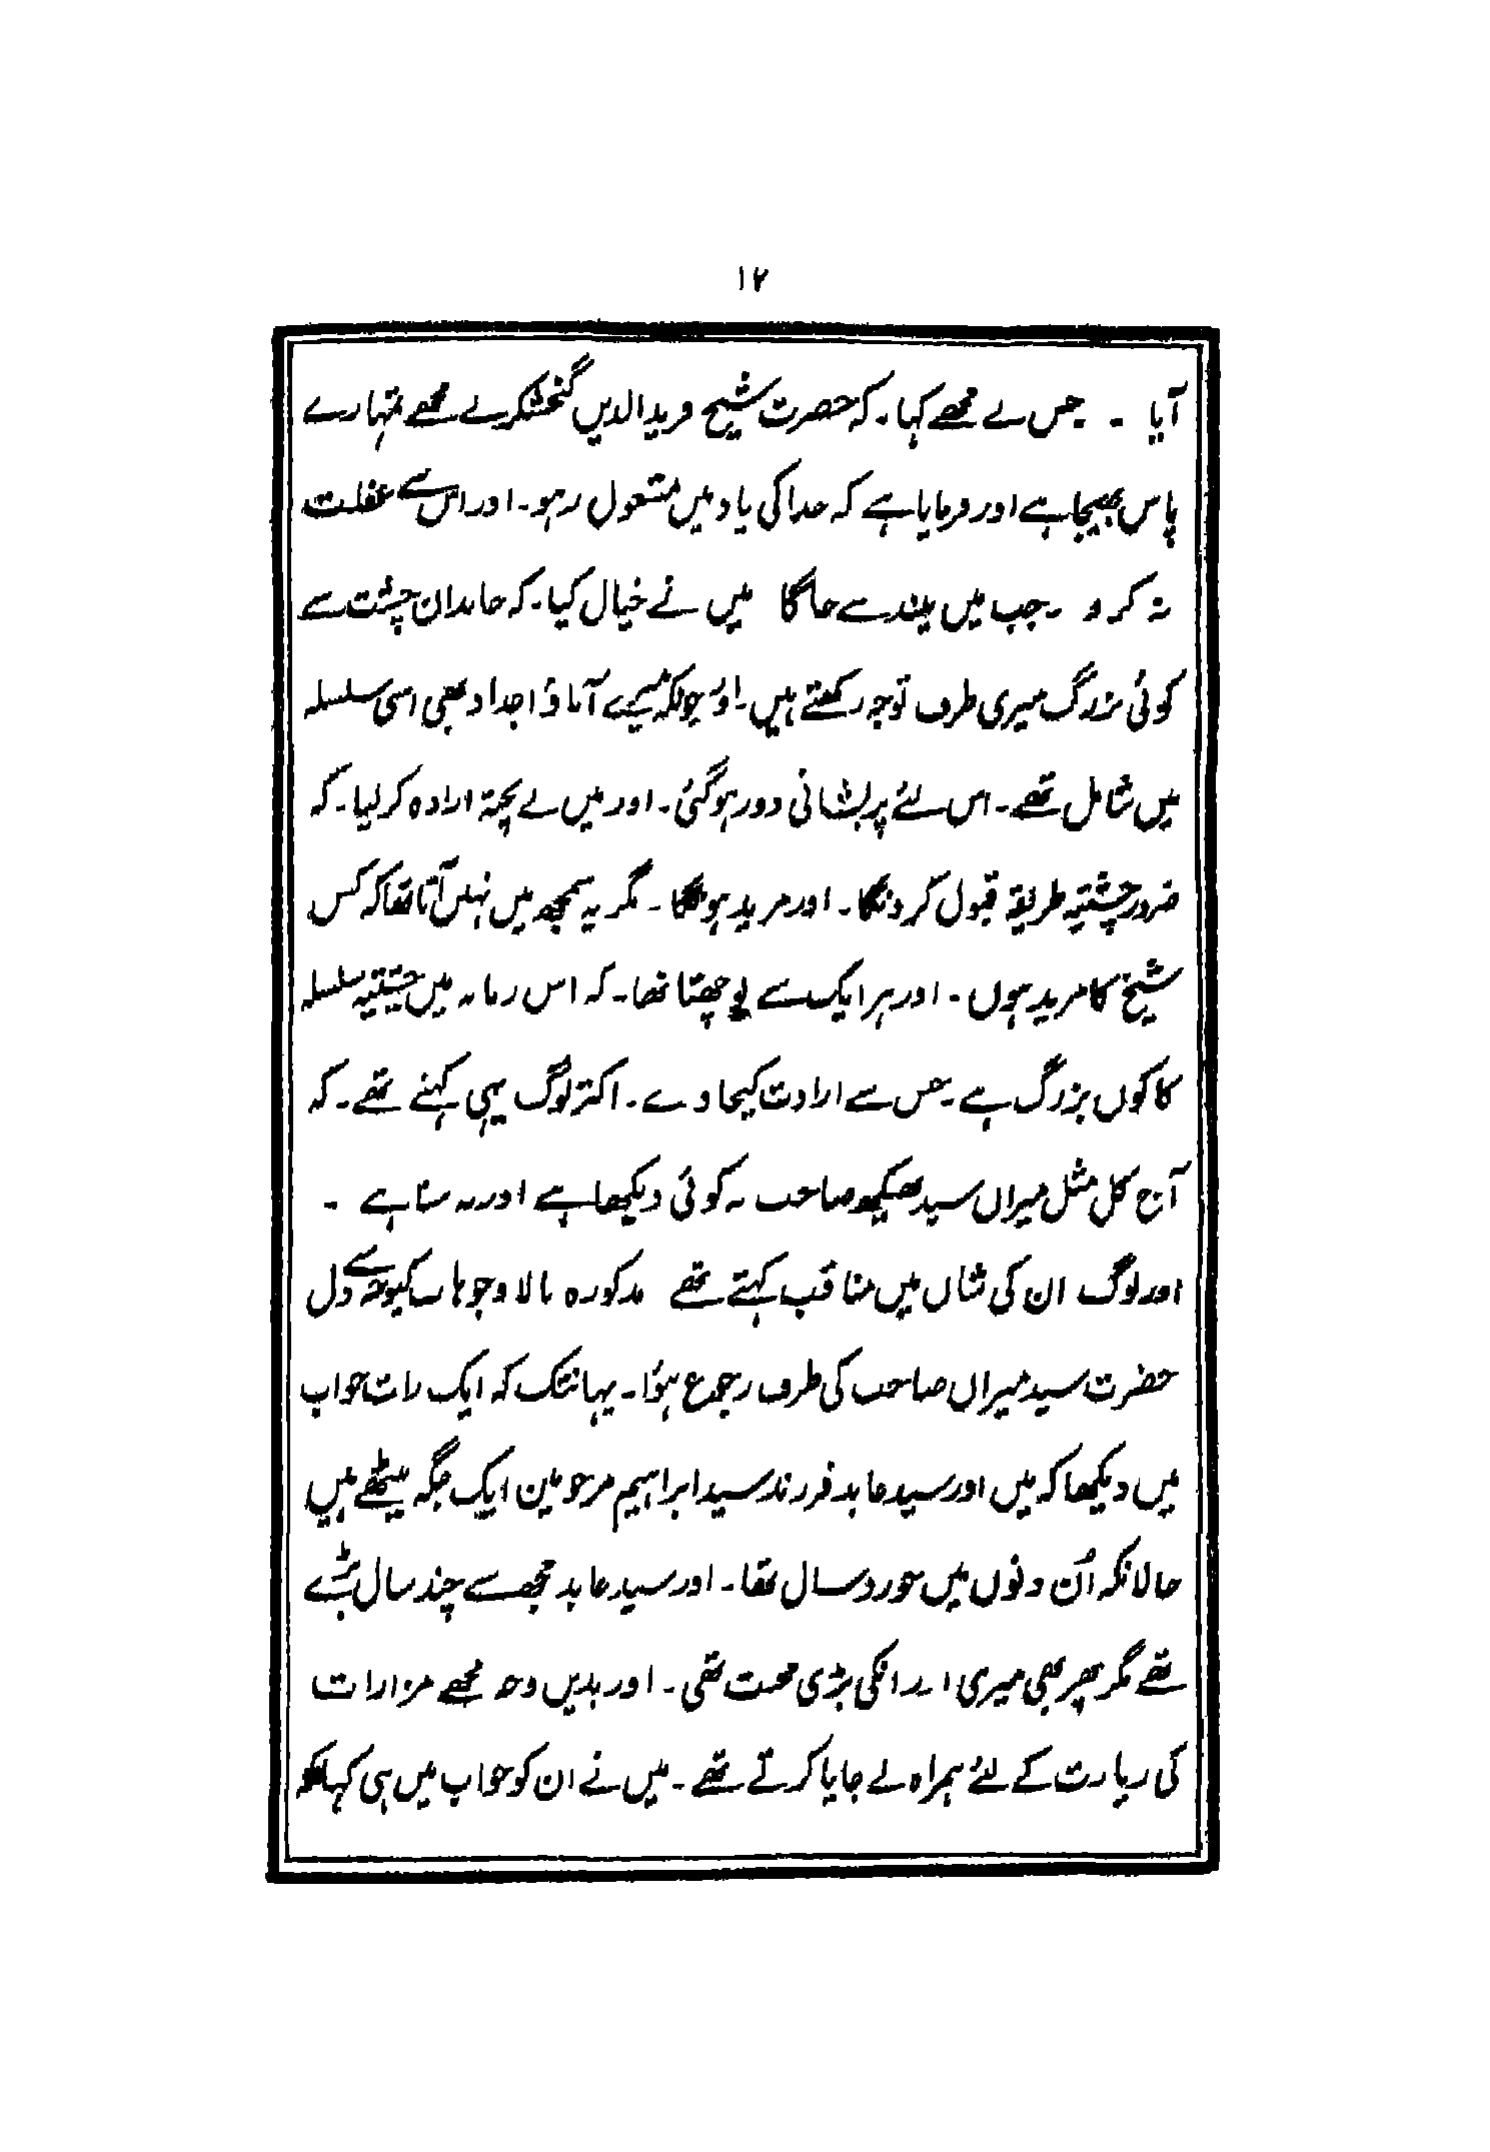 ۱۲
آیا ۔ جس نے مجھے کہا۔ کہ حضرت شیخ فریدالدین گنجشکر نے مجھے تمہارے
پاس بھیجا ہے اور فرمایا ہے کہ خدا کی یاد میں مشغول رہو۔ اور اس سے غفلت
نہ کرو ۔ جب میں نیند سے جاگا میں نے خیال کیا۔ کہ خاندان چشت سے
کوئی بزرگ میری طرف توجہ رکھتے ہیں۔ اور چونکہ میرے آباؤ اجداد بھی اسی سلسلہ
میں شامل تھے۔ اس لئے پریشانی دور ہوگئی۔ اور میں نے پختہ ارادہ کرلیا۔ کہ
ضرور چشتیہ طریقہ قبول کرونگا۔ اور مرید ہونگا ۔ مگر یہ سمجھ میں نہیں آتا تھا کہ کس
شیخ کا مرید ہوں ۔ اور ہر ایک سے پوچھتا تھا۔ کہ اس زمانہ میں چشتیہ سلسلہ
کا کون بزرگ ہے ۔ جس سے ارادت کیجاوے۔ اکثر لوگ یہی کہتے تھے۔ کہ
آج کل مثل میراں سید بھیکھ صاحب نہ کوئی دیکھا ہے اور نہ سنا ہے ۔
اور لوگ ان کی شان میں مناقب کہتے تھے مذکورہ بالا وجوہات کیوجہ سے دل
حضرت سید میراں صاحب کی طرف رجوع ہؤا۔ یہانتک کہ ایک رات خواب
میں دیکھا کہ میں اور سید عابد فرزند سید ابراہیم مرحومین ایک جگہ بیٹھے ہیں
حالانکہ اُن دنوں میں خورد سال تھا۔ اور سید عابد مجھ سے چند سال بڑے
تھے مگر پھر بھی میری اور انکی بڑی محبت تھی۔ اور بدیں وجہ مجھے مزارات
کی زیارت کے لئے ہمراہ لے جایا کرتے تھے ۔ میں نے ان کو خواب میں ہی کہا کہ